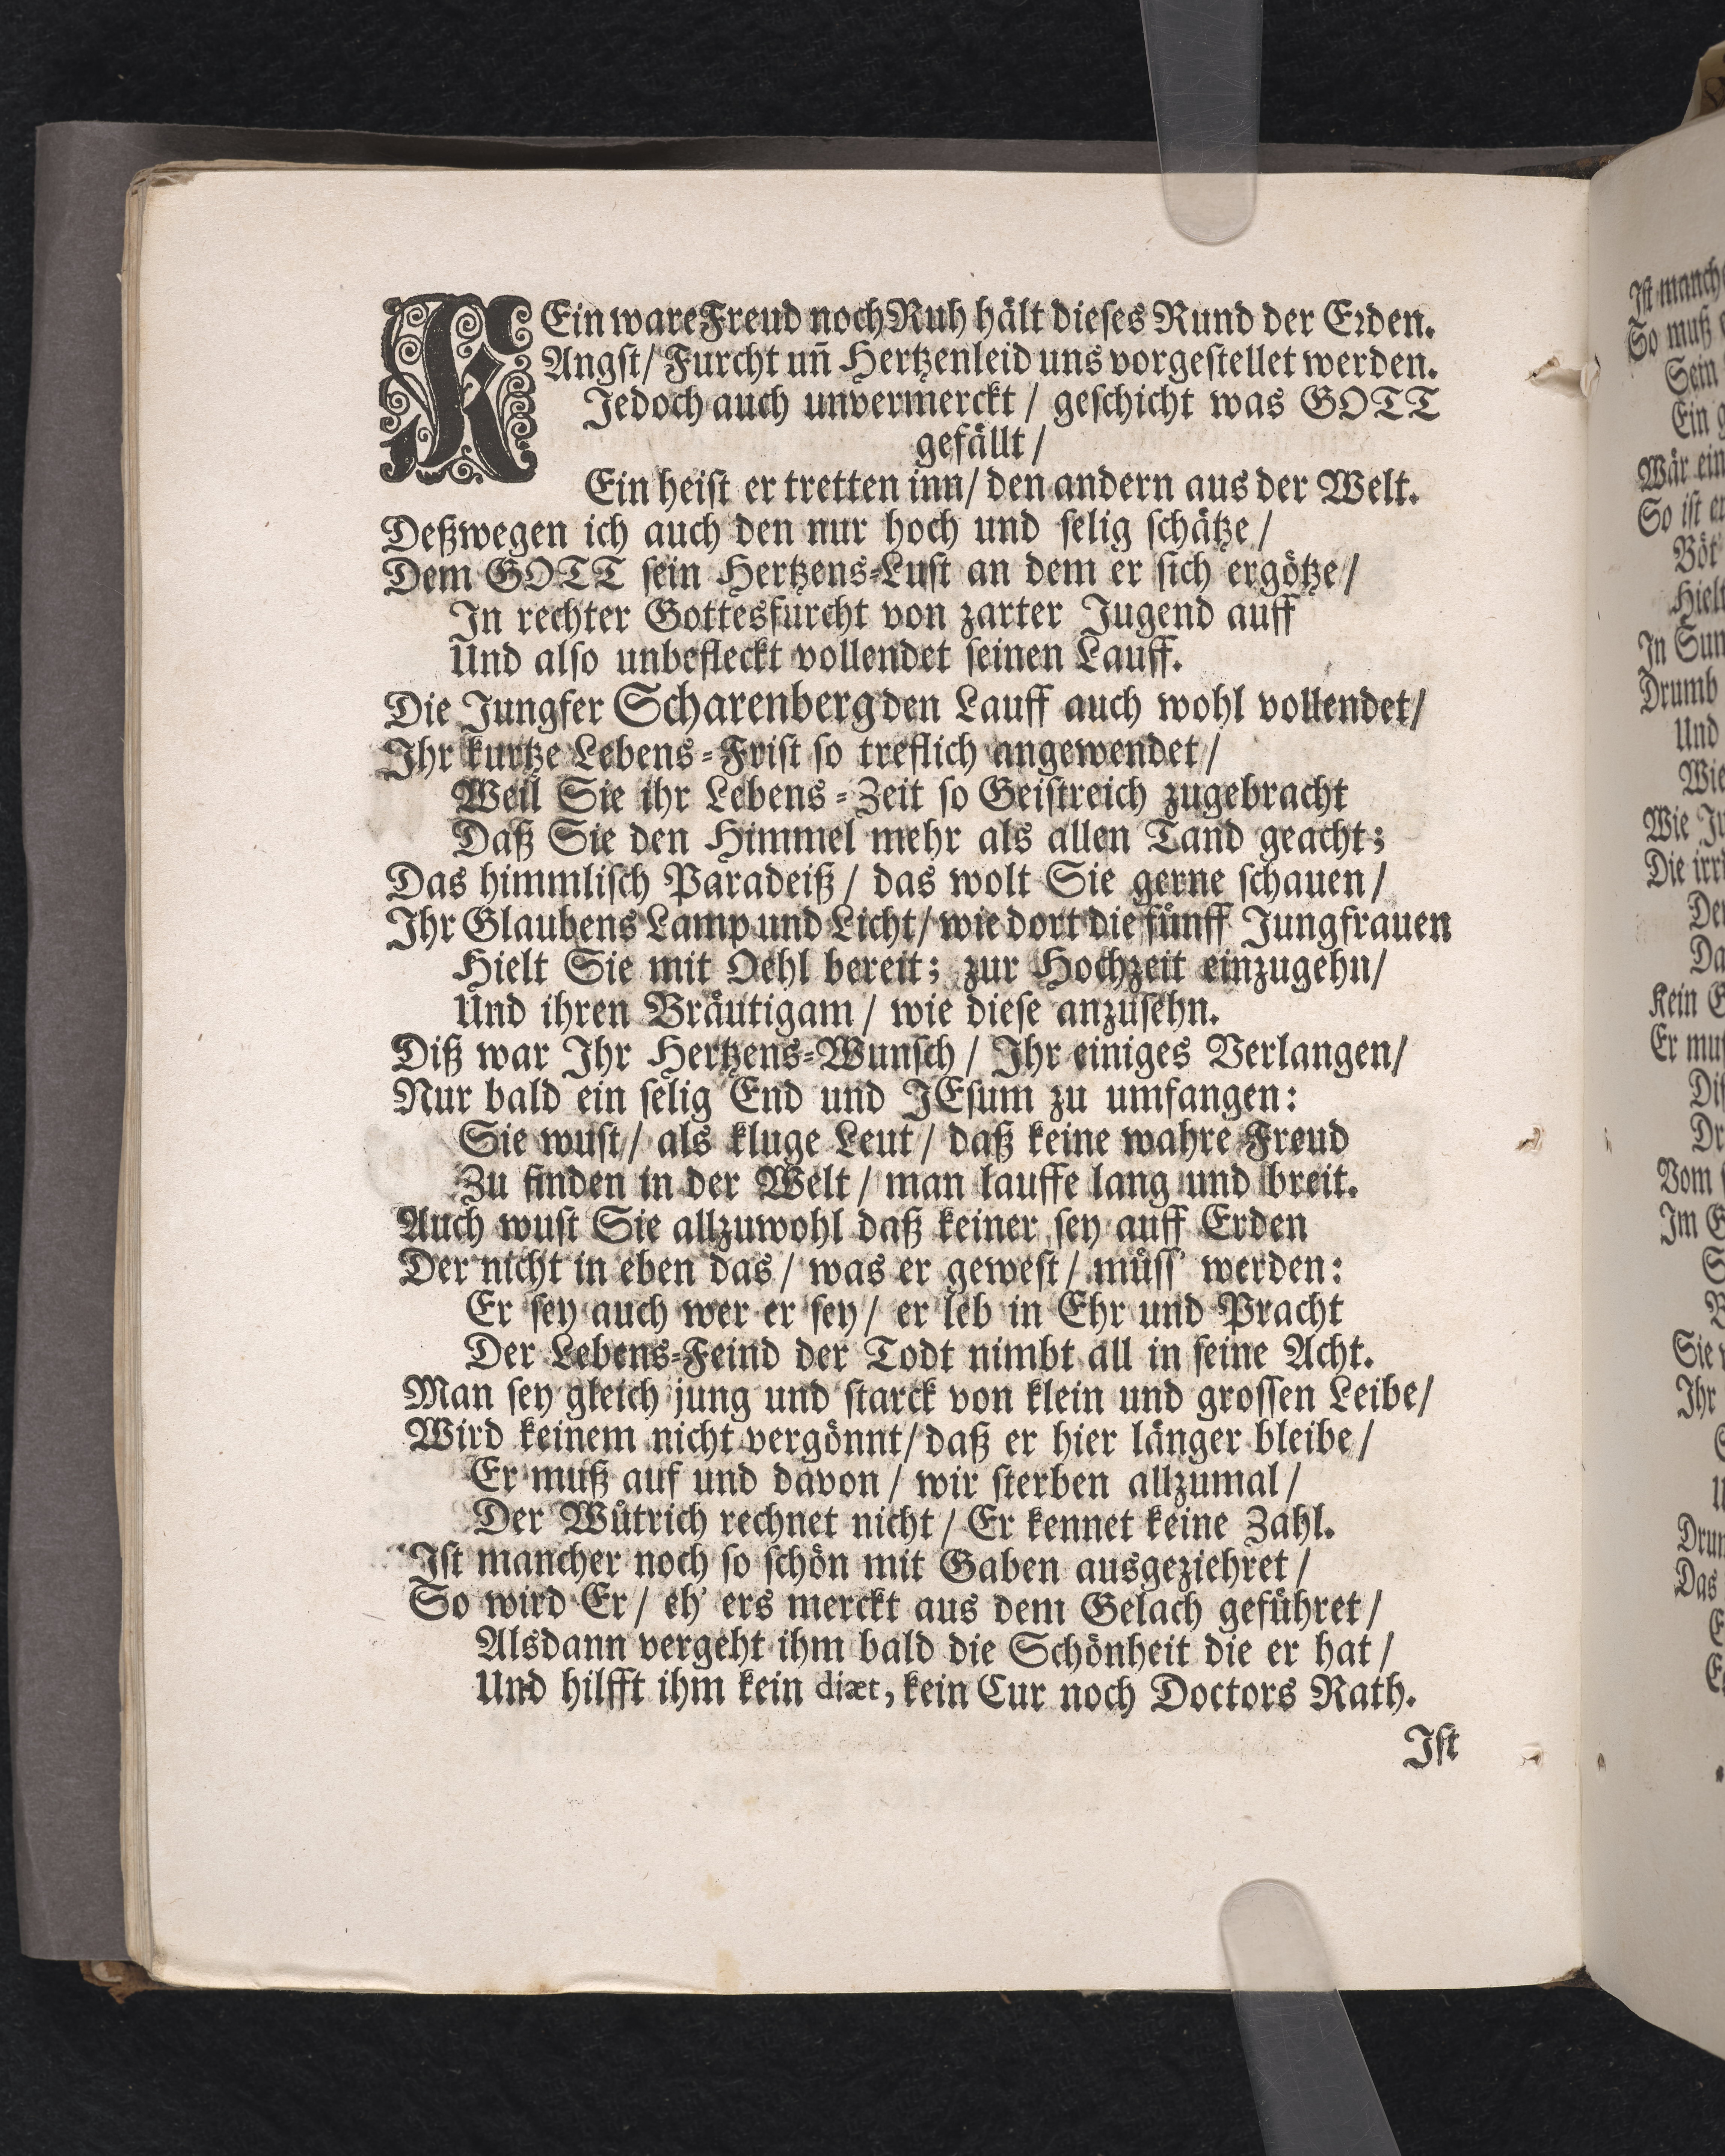 KEin ware Freud noch Ruh hält dieses Rund der Erden.
Angst/ Furcht uñ Hertzenleid uns vorgestellet werden.
Jedoch auch unvermerckt / geschicht was GOTT
gefällt /
Ein heist er tretten inn/ den andern aus der Welt.
Deßwegen ich auch den nur hoch und selig schätze /
Dem GOTT sein Hertzens-Lust an dem er sich ergötze /
In rechter Gottesfurcht von zarter Jugend auff
Und also unbefleckt vollendet seinen Lauff.
Die Jungfer Scharenberg den Lauff auch wohl vollendet /
Ihr kurtze Lebens-Frist so treflich angewendet /
Weil Sie ihr Lebens-Zeit so Geistreich zugebracht
Daß Sie den Himmel mehr als allen Tand geacht;
Das himmlisch Paradeiß / das wolt Sie gerne schauen /
Ihr Glaubens Lamp und Licht / wie dort die fünff Jungfrauen
Hielt Sie mit Oehl bereit; zur Hochzeit einzugehn /
Und ihren Bräutigam / wie diese anzusehn.
Diß war Ihr Hertzens-Wunsch / Ihr einiges Verlangen /
Nur bald ein selig End und JEsum zu umfangen:
Sie wust / als kluge Leut / daß keine wahre Freud
Zu finden in der Welt / man lauffe lang und breit.
Auch wust Sie allzuwohl daß keiner sey auff Erden
Der nicht in eben das / was er gewest / müss' werden:
Er sey auch wer er sey / er leb in Ehr und Pracht
Der Lebens-Feind der Todt nimbt all in seine Acht.
Man sey gleich jung und starck von klein und grossen Leibe /
Wird keinem nicht vergönnt / daß er hier länger bleibe /
Er muß auf und davon / wir sterben allzumal /
Der Wütrich rechnet nicht / Er kennet keine Zahl.
Ist mancher noch so schön mit Gaben ausgeziehret /
So wird Er / eh' ers merckt aus dem Gelach geführet /
Alsdann vergeht ihm bald die Schönheit die er hat /
Und hilfft ihm kein diæt, kein Cur noch Doctors Rath.
Ist
Ist manch
So muß
Sein
Ein
Wär ein
So ist
Böt
Hielt
In
Drumb
Und
Wie
Wie
Die
Kein
Er
Vom
Im
Sie
Ihr
Das